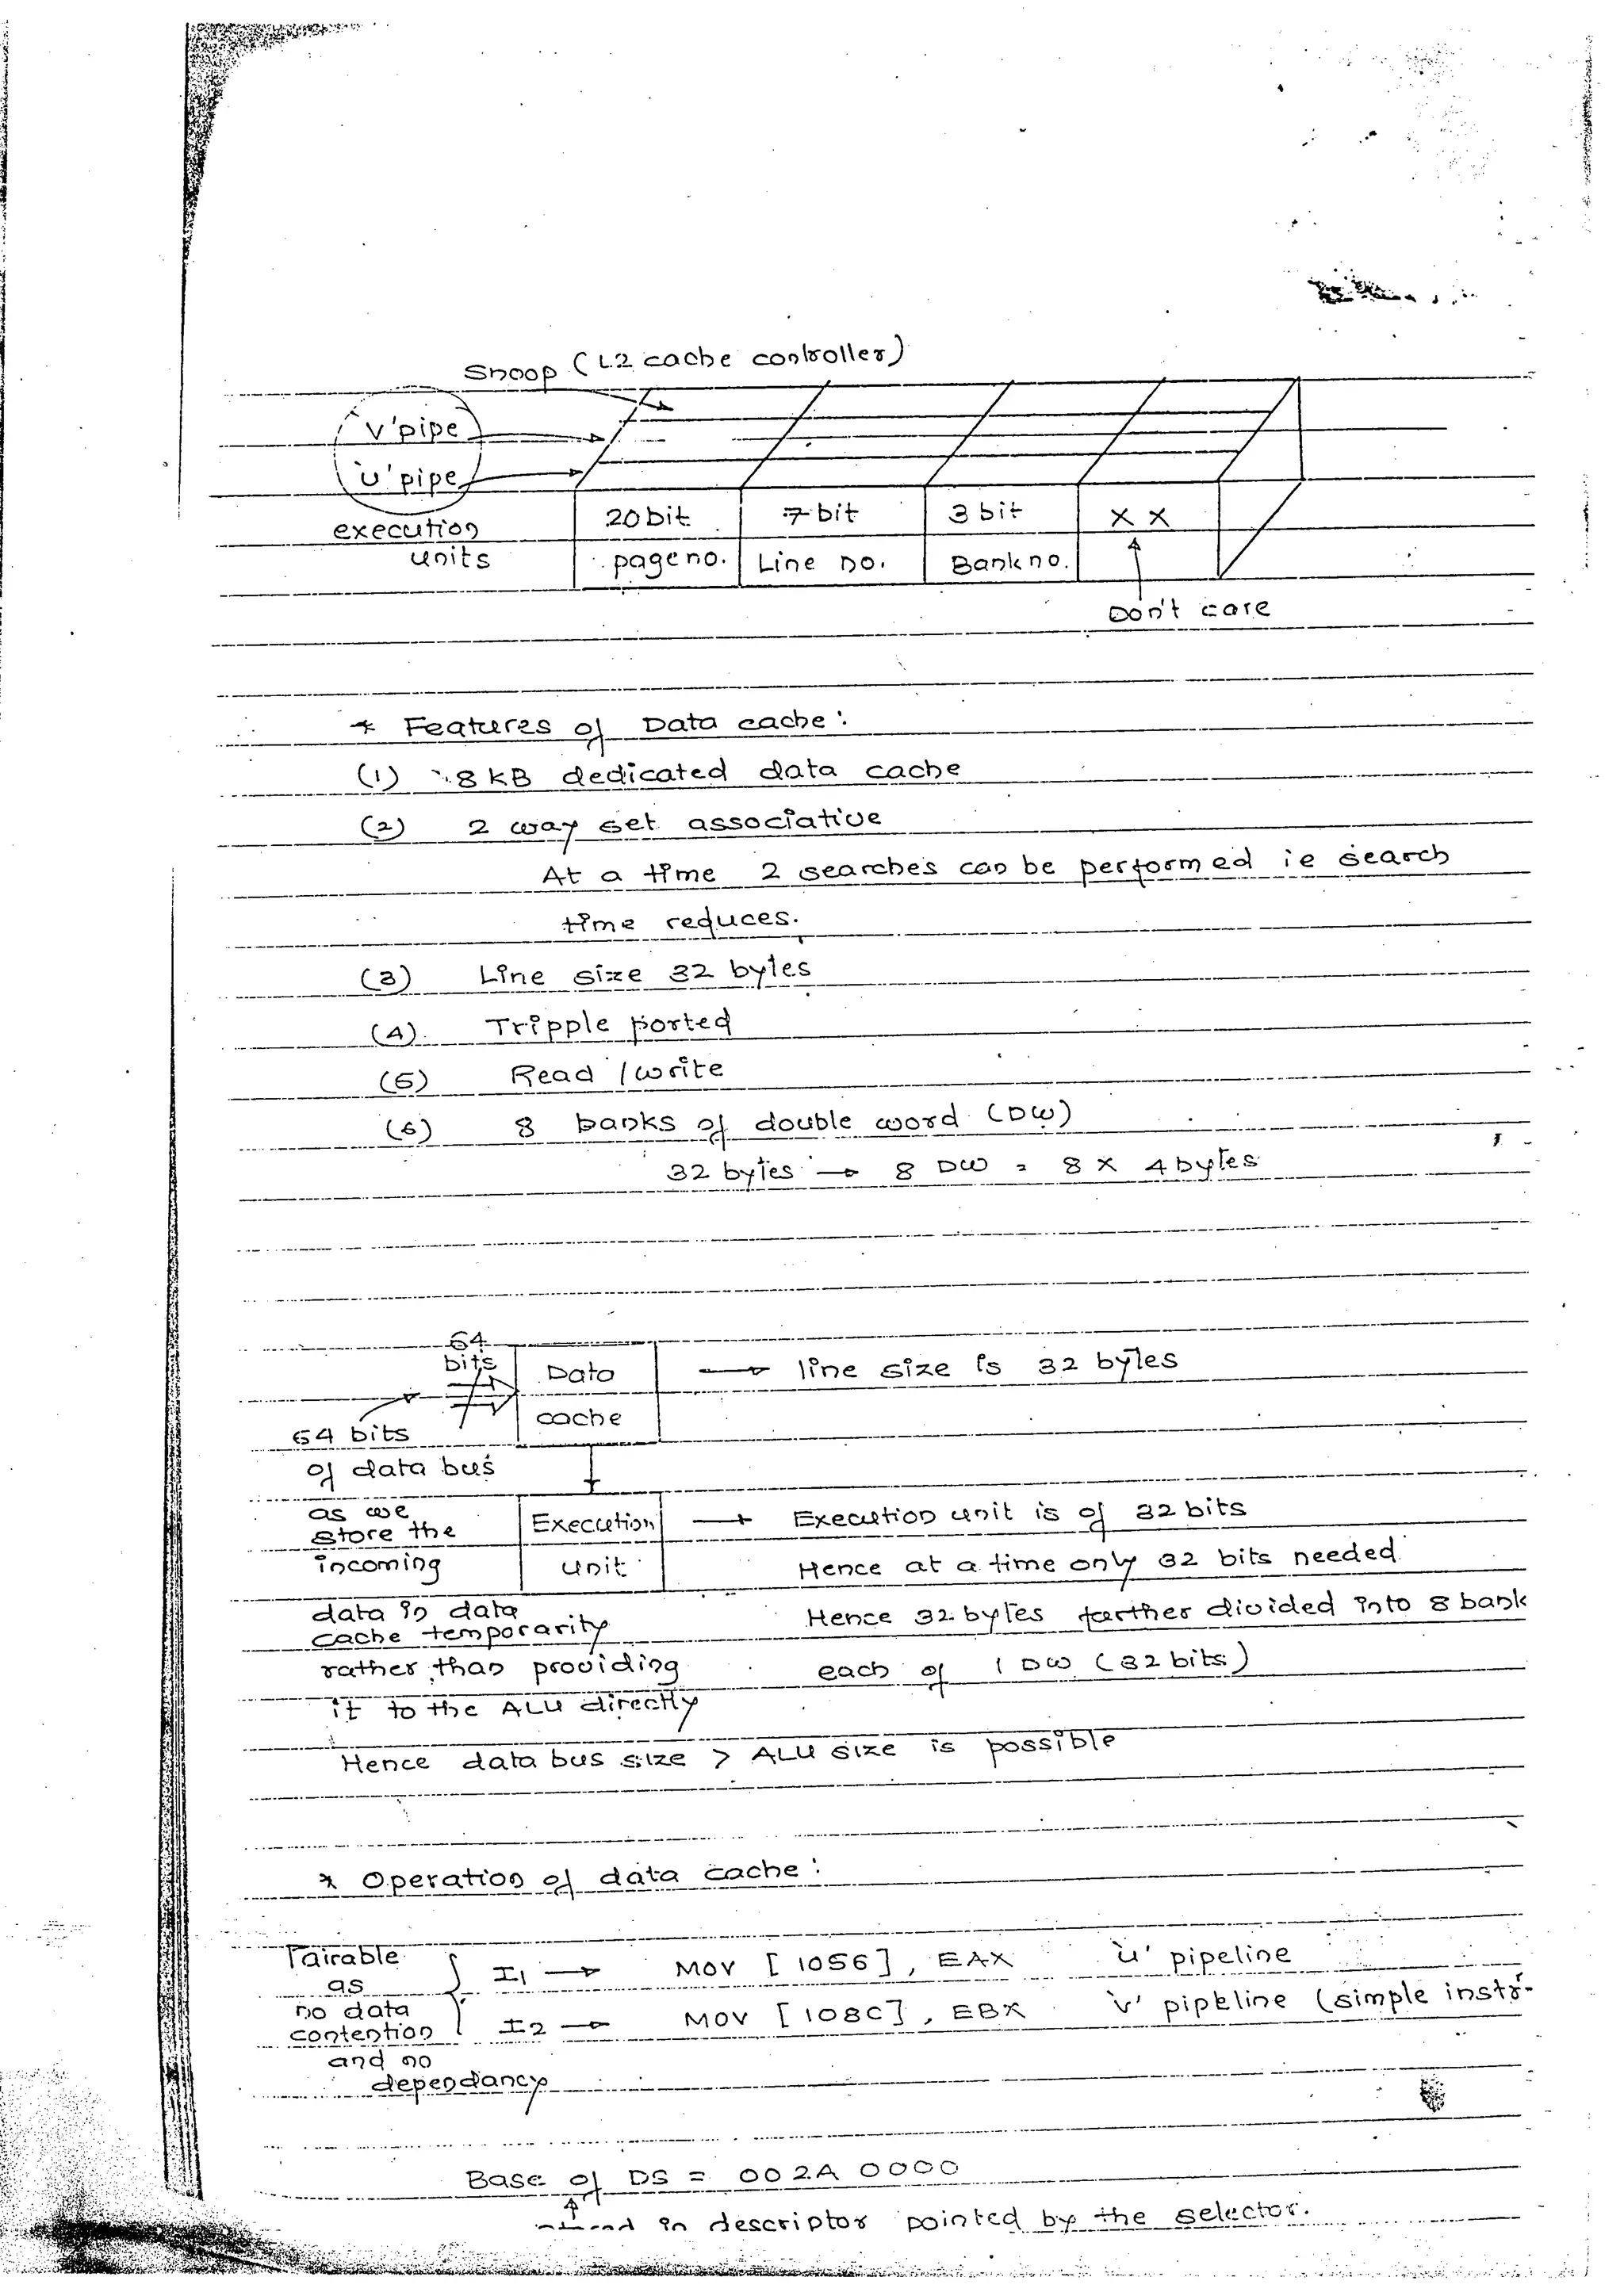 Snoop (L2 cache controller)
'V' pipe
'U' pipe
execution units
20 bit 7 bit 3 bit X X
page no. Line no. Bank no.
Don't care
* Features of Data cache :
(1) 8 KB dedicated data cache
(2) 2 way set associative
At a time 2 searches can be performed ie search
time reduces.
(3) Line size 32 bytes
(4). Tripple ported
(5) Read / write
(6) 8 banks of double word (DW)
32 bytes → 8 DW = 8 X 4 bytes
64
bits
Data
cache
→ line size is 32 bytes
64 bits
of data bus
as we
store the
incoming
data in data
cache temporarity
rather than providing
it to the ALU directly
Execution
unit
→ Execution unit is of 32 bits
Hence at a time only 32 bits needed
Hence 32 bytes further divided into 8 bank
each of 1 DW (32 bits)
Hence data bus size > ALU size is possible
* Operation of data cache :
Pairable
as
no data
contention
and no
dependancy
I1 → MOV [1056], EAX 'u' pipeline
I2 → MOV [108C], EBX 'v' pipeline (simple instr-
Base of DS = 002A 0000
in descriptor pointed by the selector.